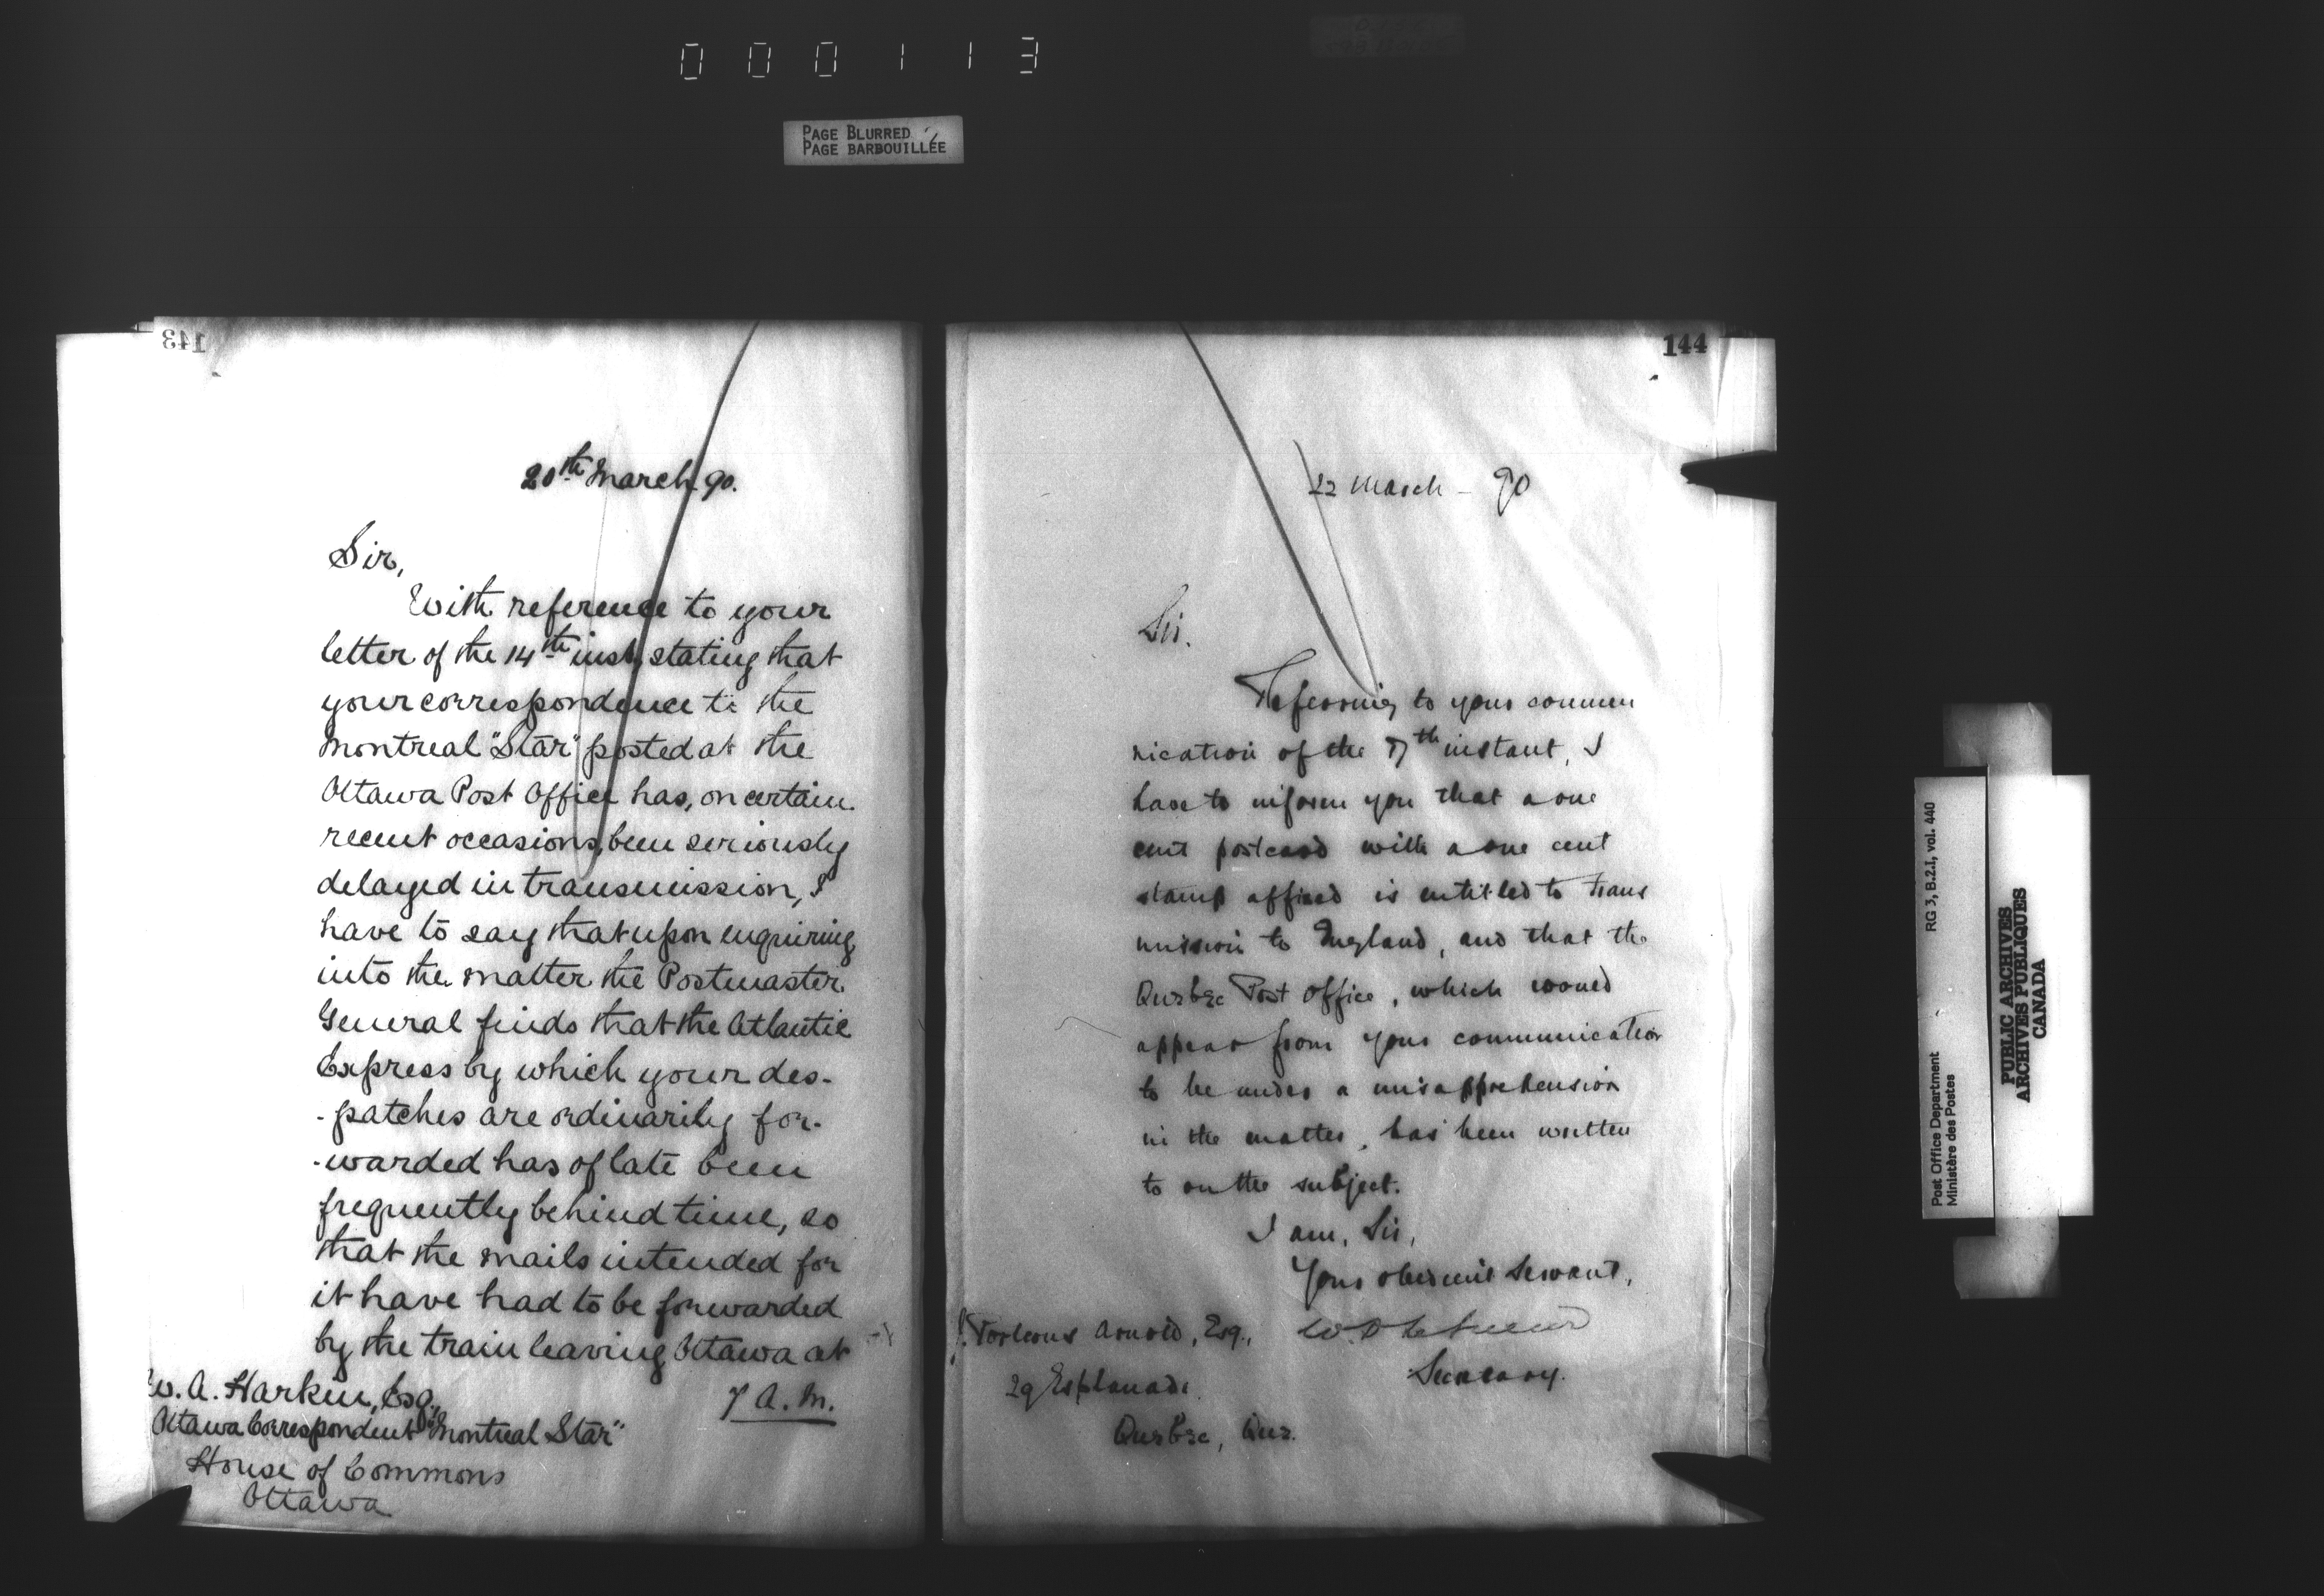 000113
PAGE BLURRED
PAGE BARBOUILLÉE
143
20th March 90.
Sir,
With reference to your
letter of the 14th inst, stating that
your correspondence to the
Montreal "Star" posted at the
Ottawa Post Office has, on certain
recent occasions, been seriously
delayed in transmission, I
have to say that upon enquiring
into the matter the Postmaster
General finds that the Atlantic
Express by which your des-
-patches are ordinarily for-
-warded has of late been
frequently behind time, so
that the mails intended for
it have had to be forwarded
by the train leaving Ottawa at
7 A.M.
W. A. Harkin, Esq.,
Ottawa Correspondent "Montreal Star"
House of Commons
Ottawa
144
22 March - 90
Sir.
Referring to your commu
nication of the 17th instant, I
have to inform you that a one
cent postcard with a one cent
stamp affixed is entitled to trans
mission to England, and that the
Quebec Post Office, which would
appear from your communication
to be under a misapprehension
in the matter, has been written
to on the subject.
I am, Sir,
Your obedient Servant,
Secretary.
Arnold, Esq.,
29 Esplanade
Quebec, Que.
Post Office Department
Ministère des Postes
RG 3, B.2.I, vol. 440
PUBLIC ARCHIVES
ARCHIVES PUBLIQUES
CANADA